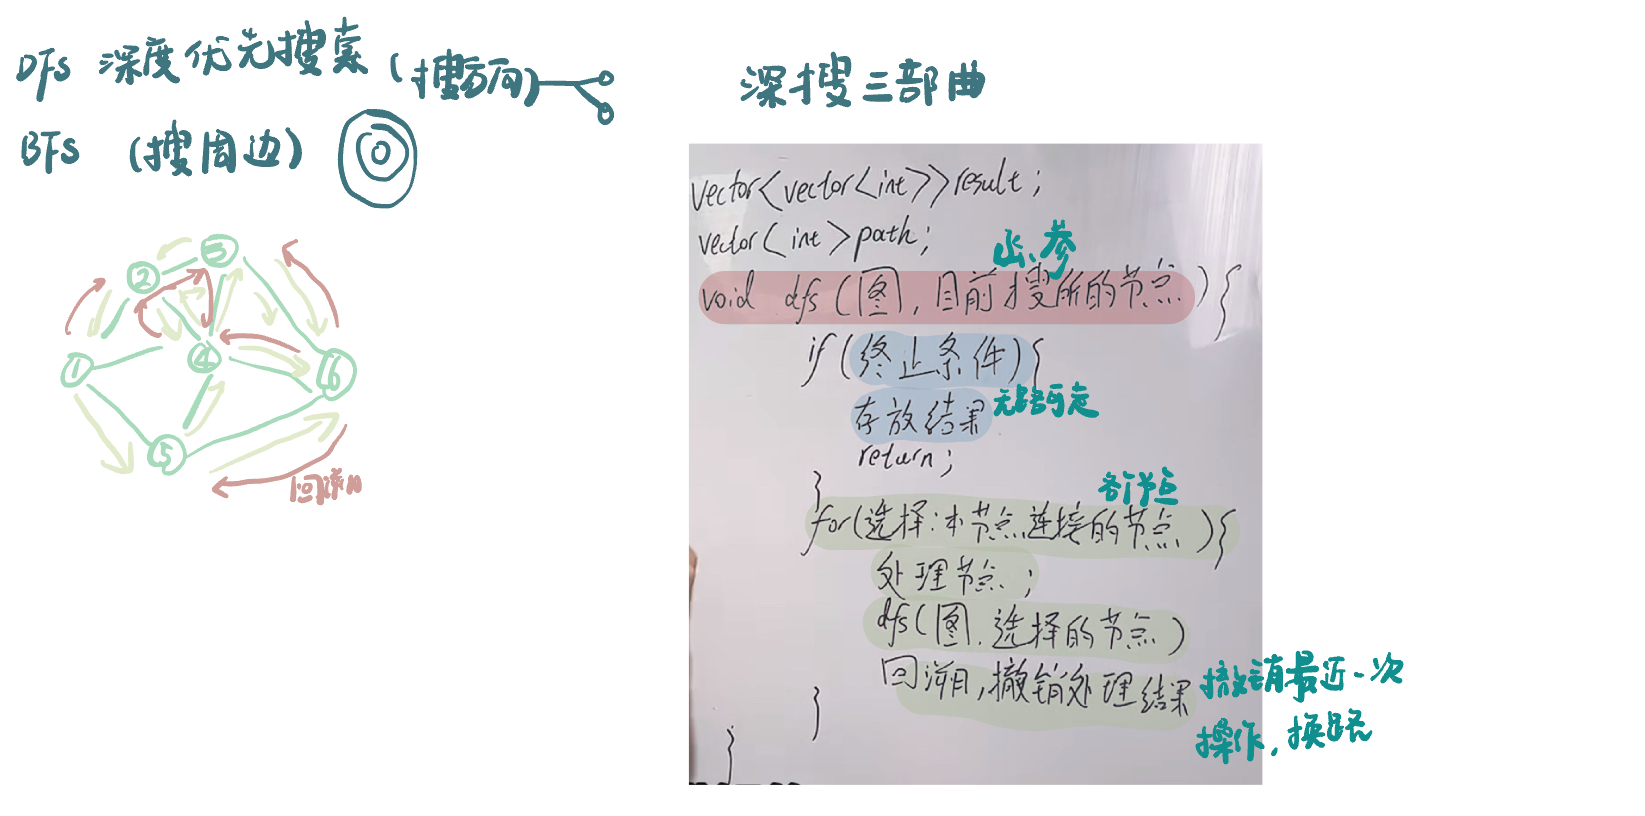 DFS 深度优先搜索 (搜方向)
BFS (搜周边)
2
3
1
4
6
5
回溯
深搜三部曲
vector<vector<int>>result;
vector<int>path;
函、参
void dfs(图,目前搜所的节点){
if(终止条件){
存放结果
无路可走
return;
}
各个节点
for(选择:本节点连接的节点){
处理节点;
dfs(图.选择的节点)
回溯,撤销处理结果
撤销最近一次
操作,换路
}
}